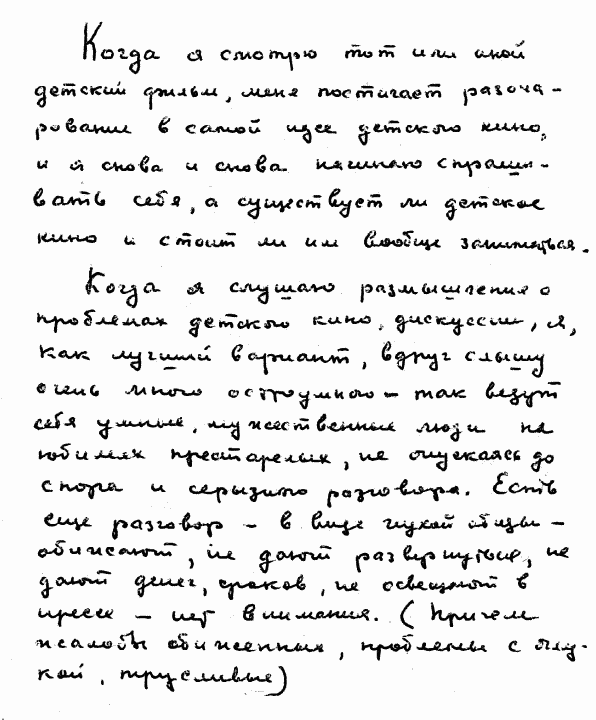 Когда я смотрю тот или иной
детский фильм, меня постигает разоча-
рование в самой идее детского кино,
и я снова и снова начинаю спраши-
вать себя, а существует ли детское
кино и стоит ли им вообще заниматься.
Когда я слушаю размышления о
проблемах детского кино, дискуссии, я,
как лучший вариант, вдруг слышу
очень много остроумного – так везут
себя умные, мужественные люди на
юбилеях престарелых, не опускаясь до
спора и серьезного разговора. Есть
еще разговор – в виде глухой обиды –
обижают, не дают развернуться, не
дают денег, сроков, не освещают в
прессе – нет внимания. (Причем
жалобы обиженных, проблемы с
кой, трусливые)